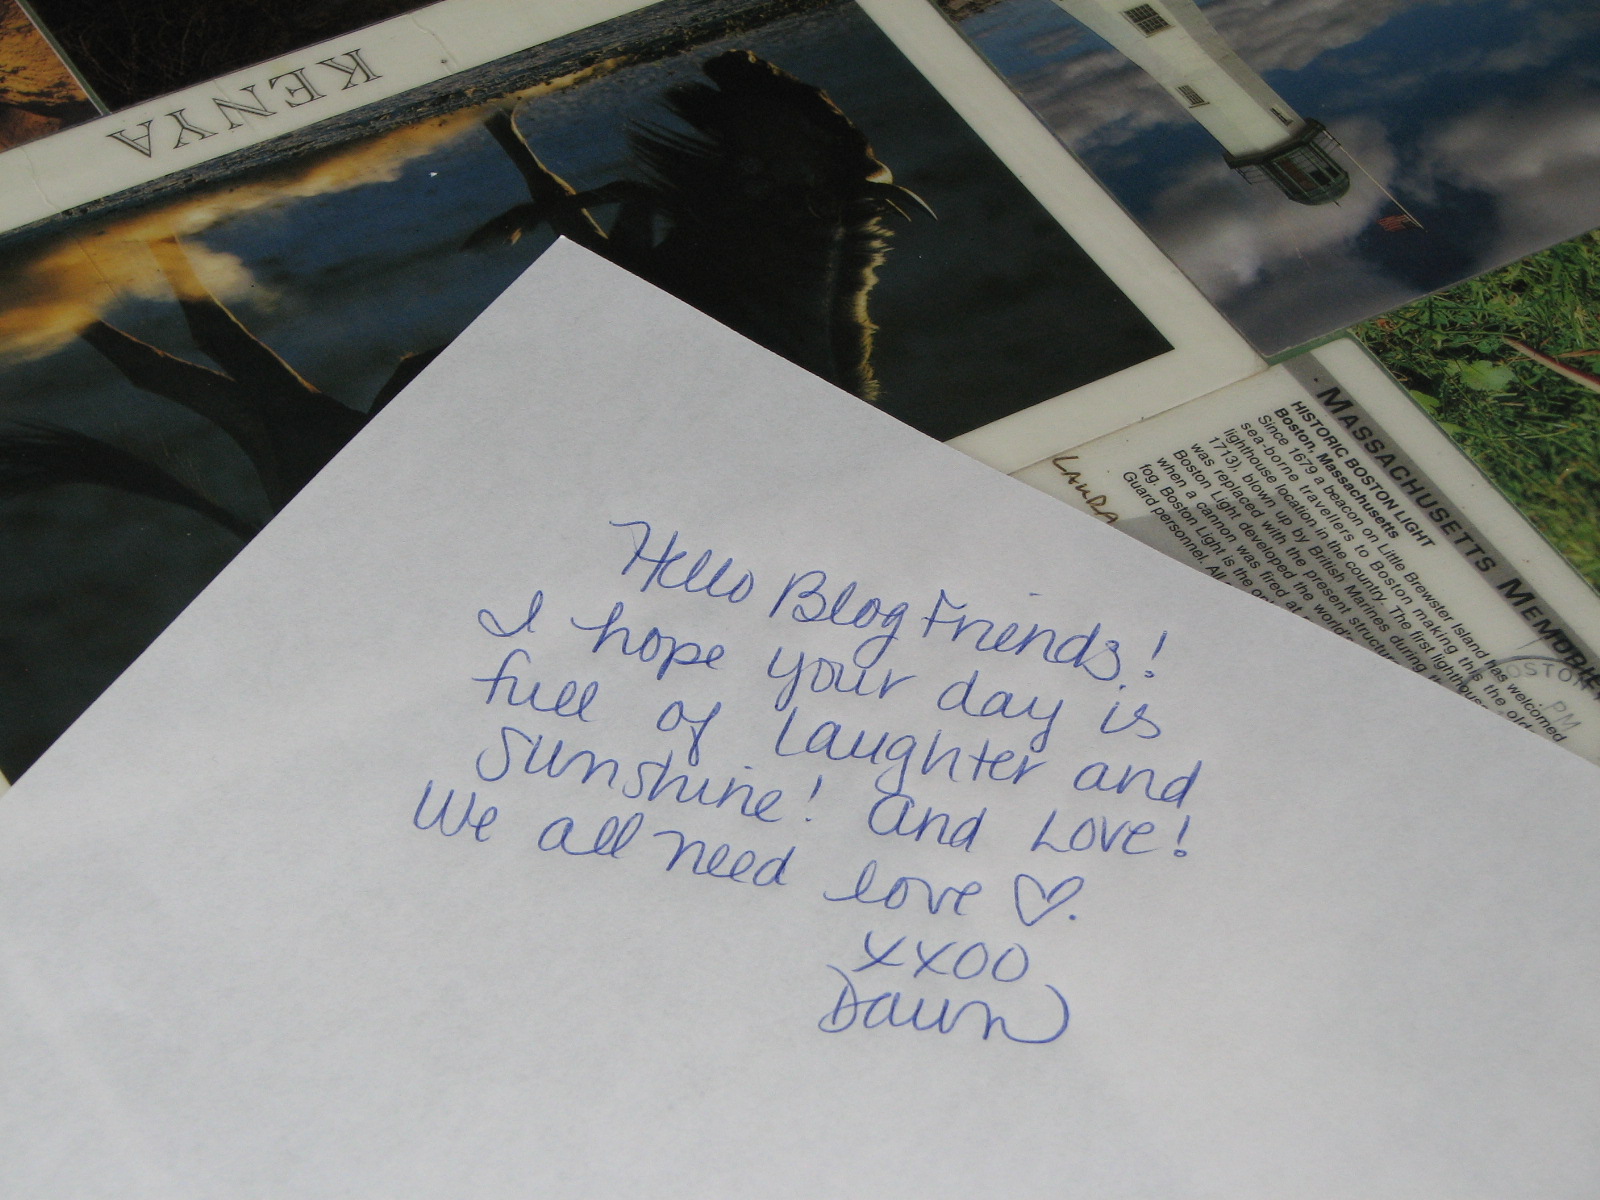 KENYA
MASSACHUSETTS
HISTORIC BOSTON LIGHT
Boston, Massachusetts
Since 1679 a beacon on Little Brewster Island has welcomed
sea-borne travellers to Boston making this the
lighthouse location in the country. The first
1713), blown up by British Marines during
was replaced with the present
Boston Light developed the world's
when a cannon was fired
fog. Boston Light is the
Guard personnel. All
LAURA
PM
Hello Blog Friends!
I hope your day is
full of Laughter and
Sunshine! And Love!
We all need love ♡.
xxoo
Dawn